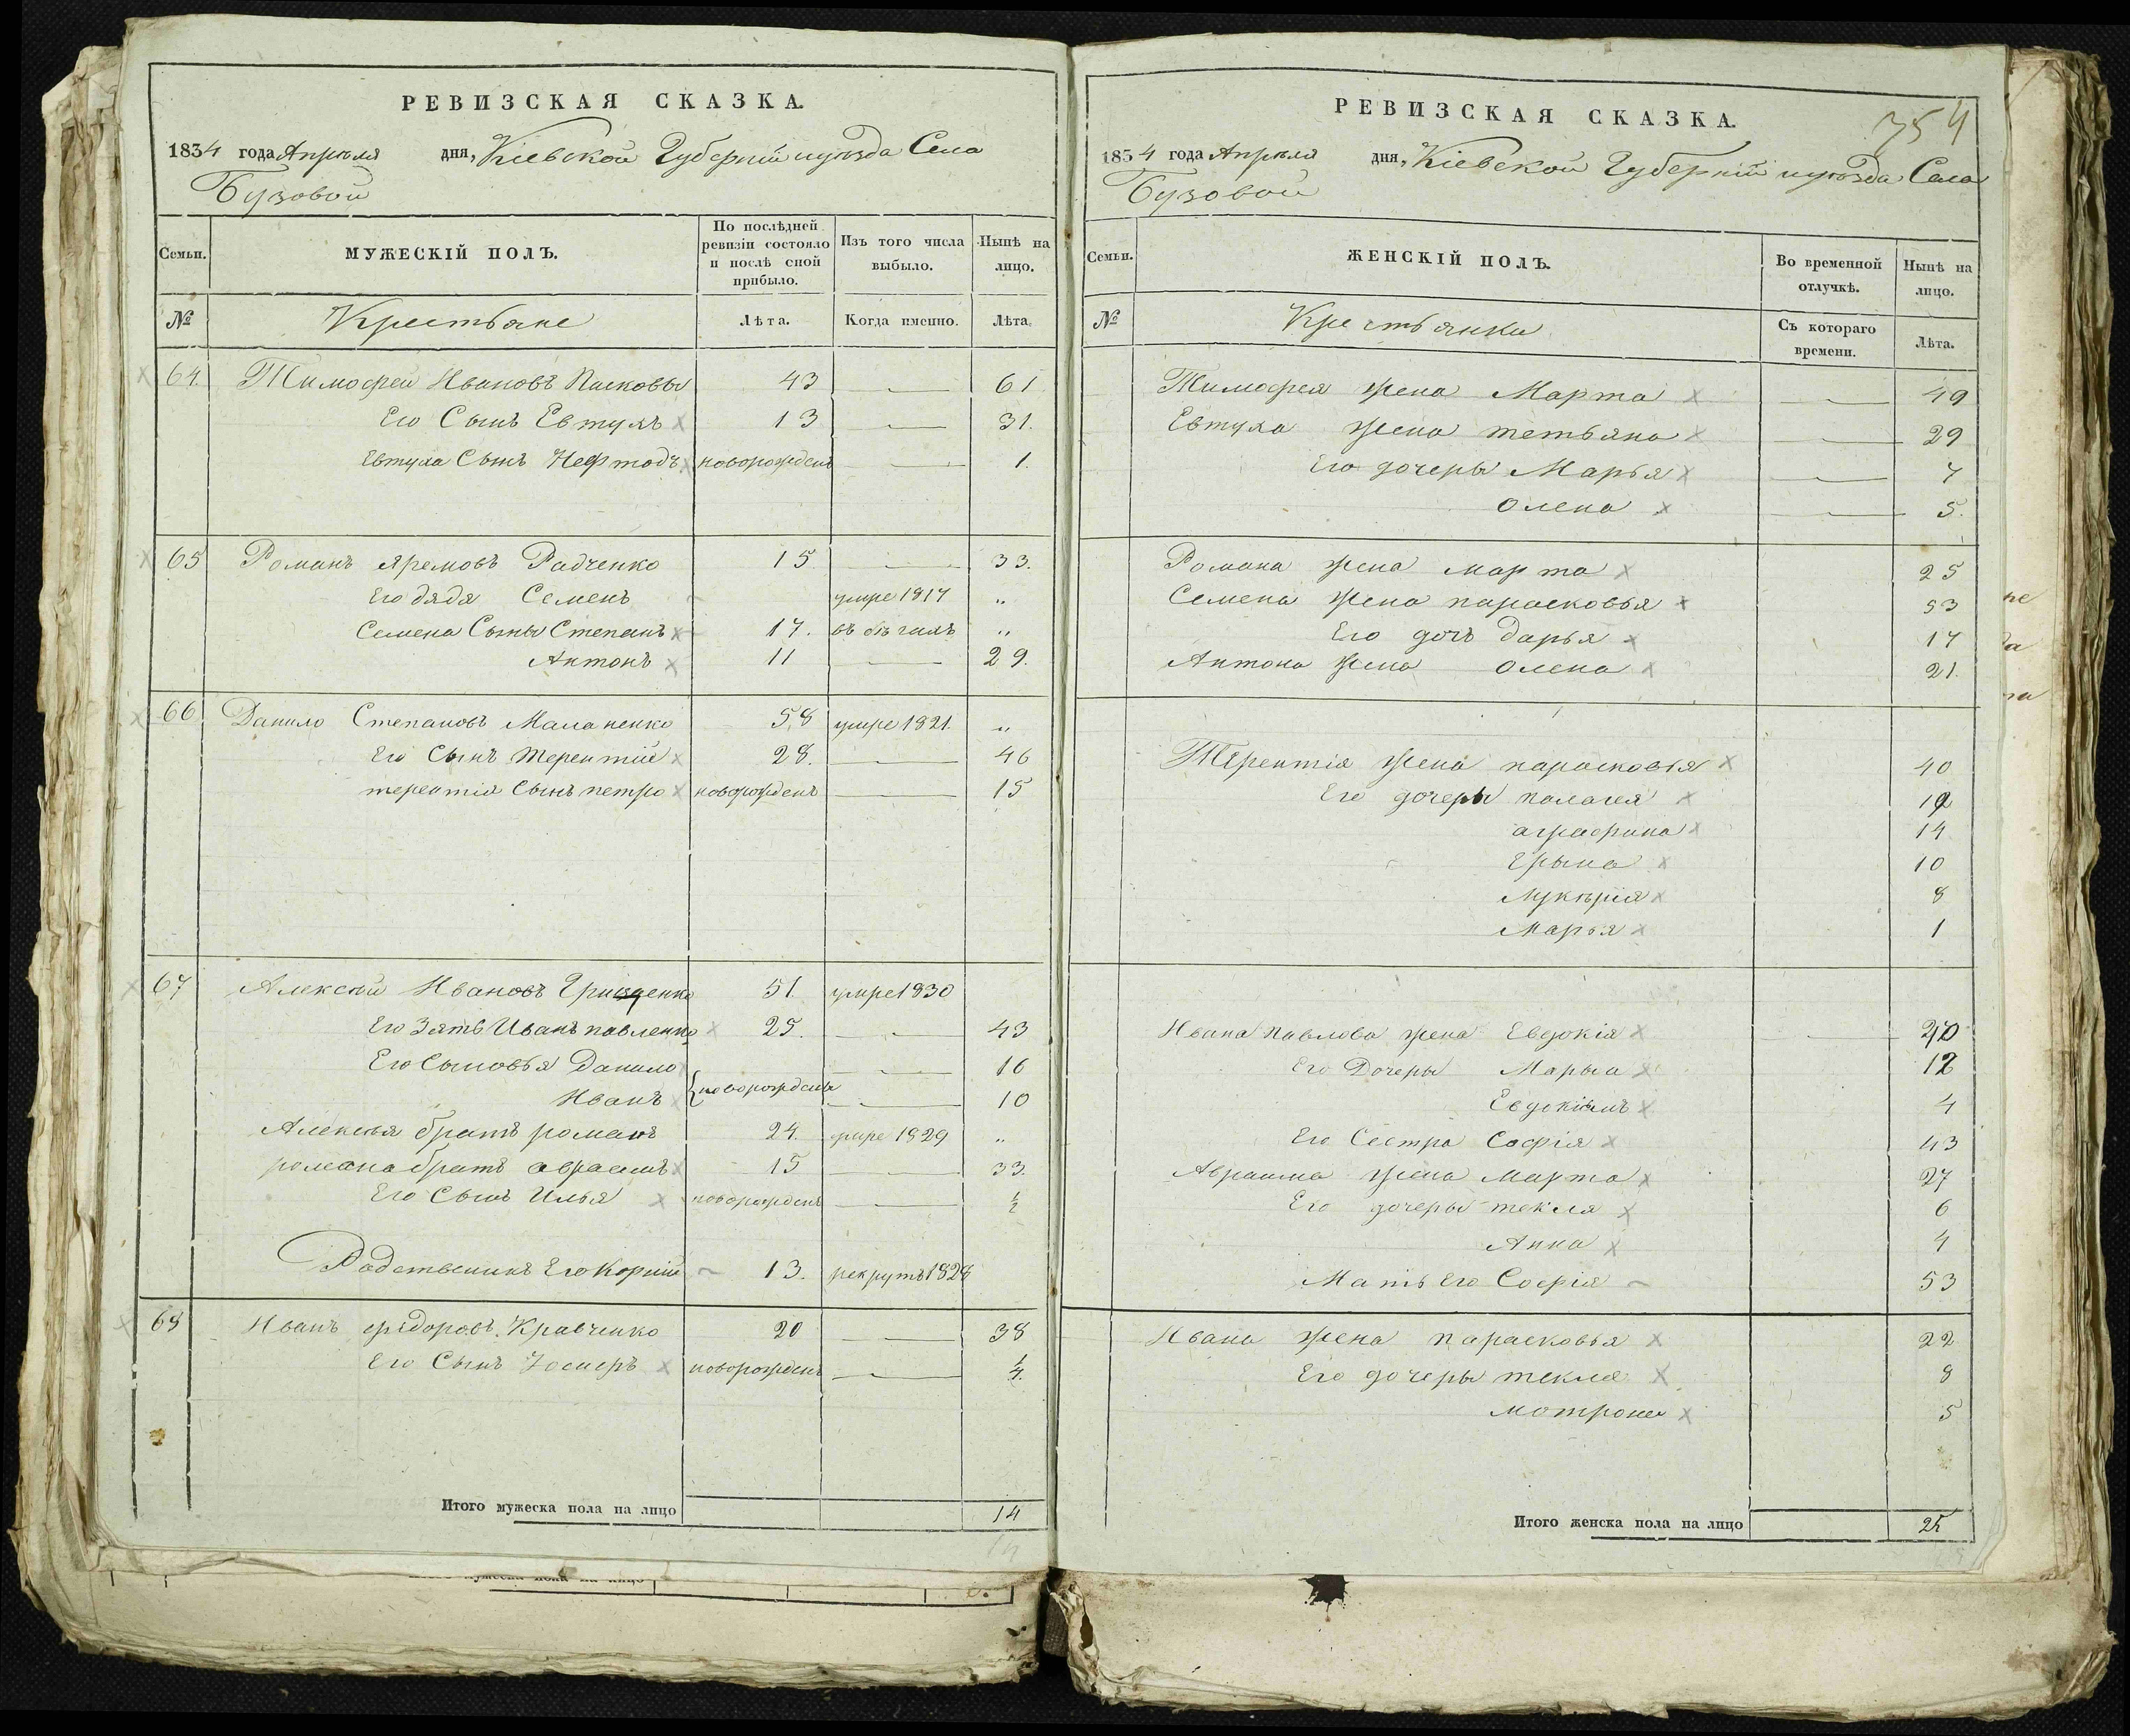 РЕВИЗСКАЯ СКАЗКА.
1834 года Апреля дня, Кіевской Губерніи и уезда Села
Бузовой
Семьи. МУЖЕСКІЙ ПОЛЪ. По послѣдней ревизіи состояло и послѣ сной прибыло. Изъ того числа выбыло. Нынѣ на лицо.
№ Крестьяне Лѣта. Когда именно. Лѣта.
64. Тимофей Ивановъ 43 — 61
Его Сынъ Евтухъ 13 — 31.
Евтуха Сынъ новорожденъ — 1.
65 Романъ Яремовъ Радченко 15 — 33.
Его дядя Семенъ умре 1817 „
Семена Сыны Степанъ 17. въ бегахъ „
Антонъ 11 — 29.
66 Данило Степановъ Маланенко 58 умре 1821. „
Его Сынъ Терентій 28. — 46
терентія Сынъ петро новорожденъ — 15
67 Алексей Ивановъ 51. умре 1830
Его Зять Иванъ павленко 25. — 43
Его Сыновья Данило — 16
Иванъ {новорождены — 10
Алексея братъ романъ 24. умре 1829 „
романа братъ авраамъ 15 — 33.
Его Сынъ Илья новорожденъ — ½
Родственникъ Его Корній 13. рекрутъ 1828
68 Иванъ федоровъ Кравченко 20 — 38
Его Сынъ Іосифъ новорожденъ — ¼.
Итого мужеска пола на лицо 14
14
РЕВИЗСКАЯ СКАЗКА.
754
1834 года Апреля дня, Кіевской Губерніи и уезда Села
Бузовой
Семьи. ЖЕНСКІЙ ПОЛЪ. Во временной отлучкѣ. Нынѣ на лицо.
№ Крестьянки Съ котораго времени. Лѣта.
Тимофея жена Марта — 49
Евтуха жена тетьяна — 29
Его дочеры Марья — 7
Олена — 5.
Романа жена марта 25
Семена жена парасковья 53
Его дочь дарья 17
Антона жена Олена 21.
Терентія жена парасковья 40
Его дочеры палагея
аграфина 14
Ерына 10
Лукерія 8
Марья 1
Ивана павлова жена Евдокія —
Его Дочеры Марья 12
4
Его Сестра Софія 43
Авраама жена марта 27
Его дочеры текля 6
Анна 4
Мать Его Софія 53
Ивана жена парасковья 22
Его дочеры текля 8
мотрона 5
Итого женска пола на лицо 25